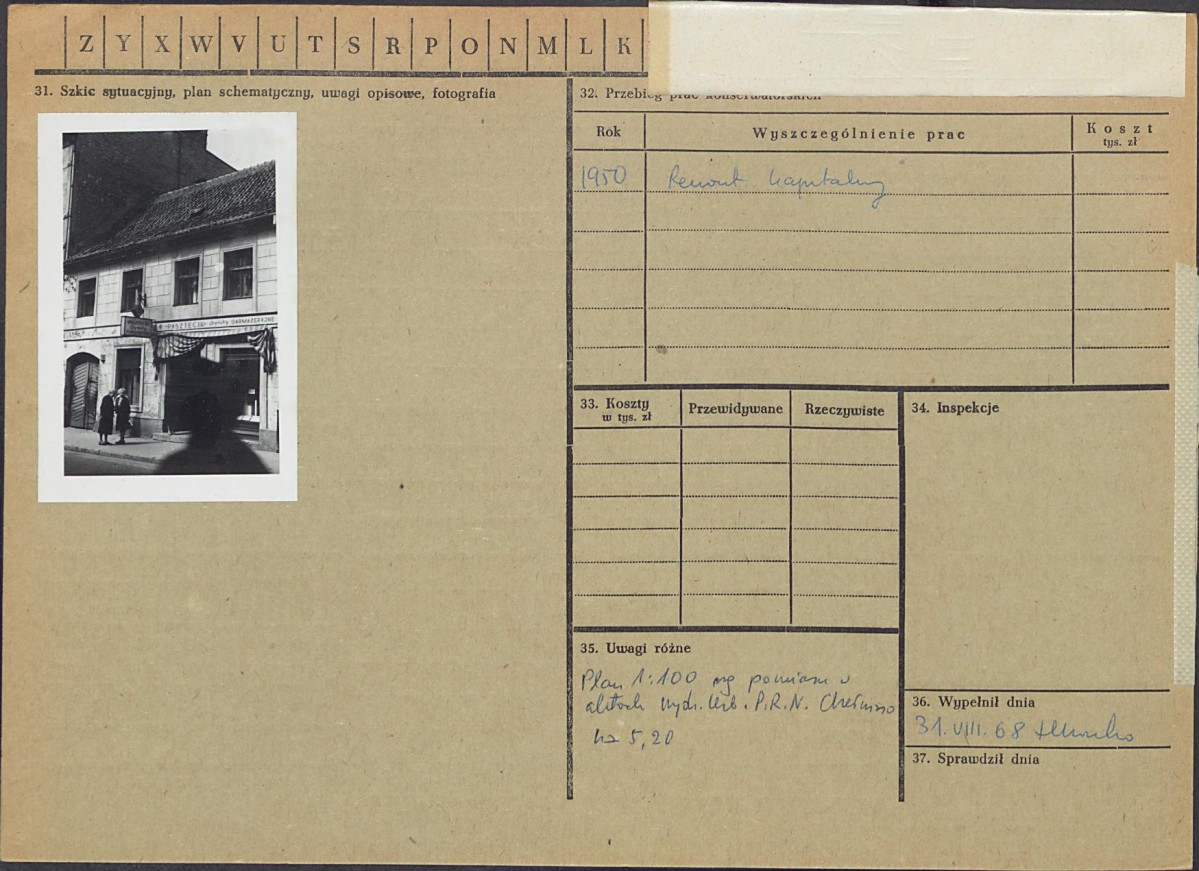 Z Y X W V U T S R P O N M L K
31. Szkic sytuacyjny, plan schematyczny, uwagi opisowe, fotografia
PASZTECIK WYROBY GARMAŻERYJNE
32. Przebieg prac konserwatorskich
Rok
Wyszczególnienie prac
Koszt
tys. zł
1950 Remont kapitalny
33. Koszty
w tys. zł
Przewidywane
Rzeczywiste
34. Inspekcje
35. Uwagi różne
Plan 1:100 wg pomiaru w
aktach wydz. Urb. P.R.N. Chełmno
5,20
36. Wypełnił dnia
31.VIII.68
37. Sprawdził dnia